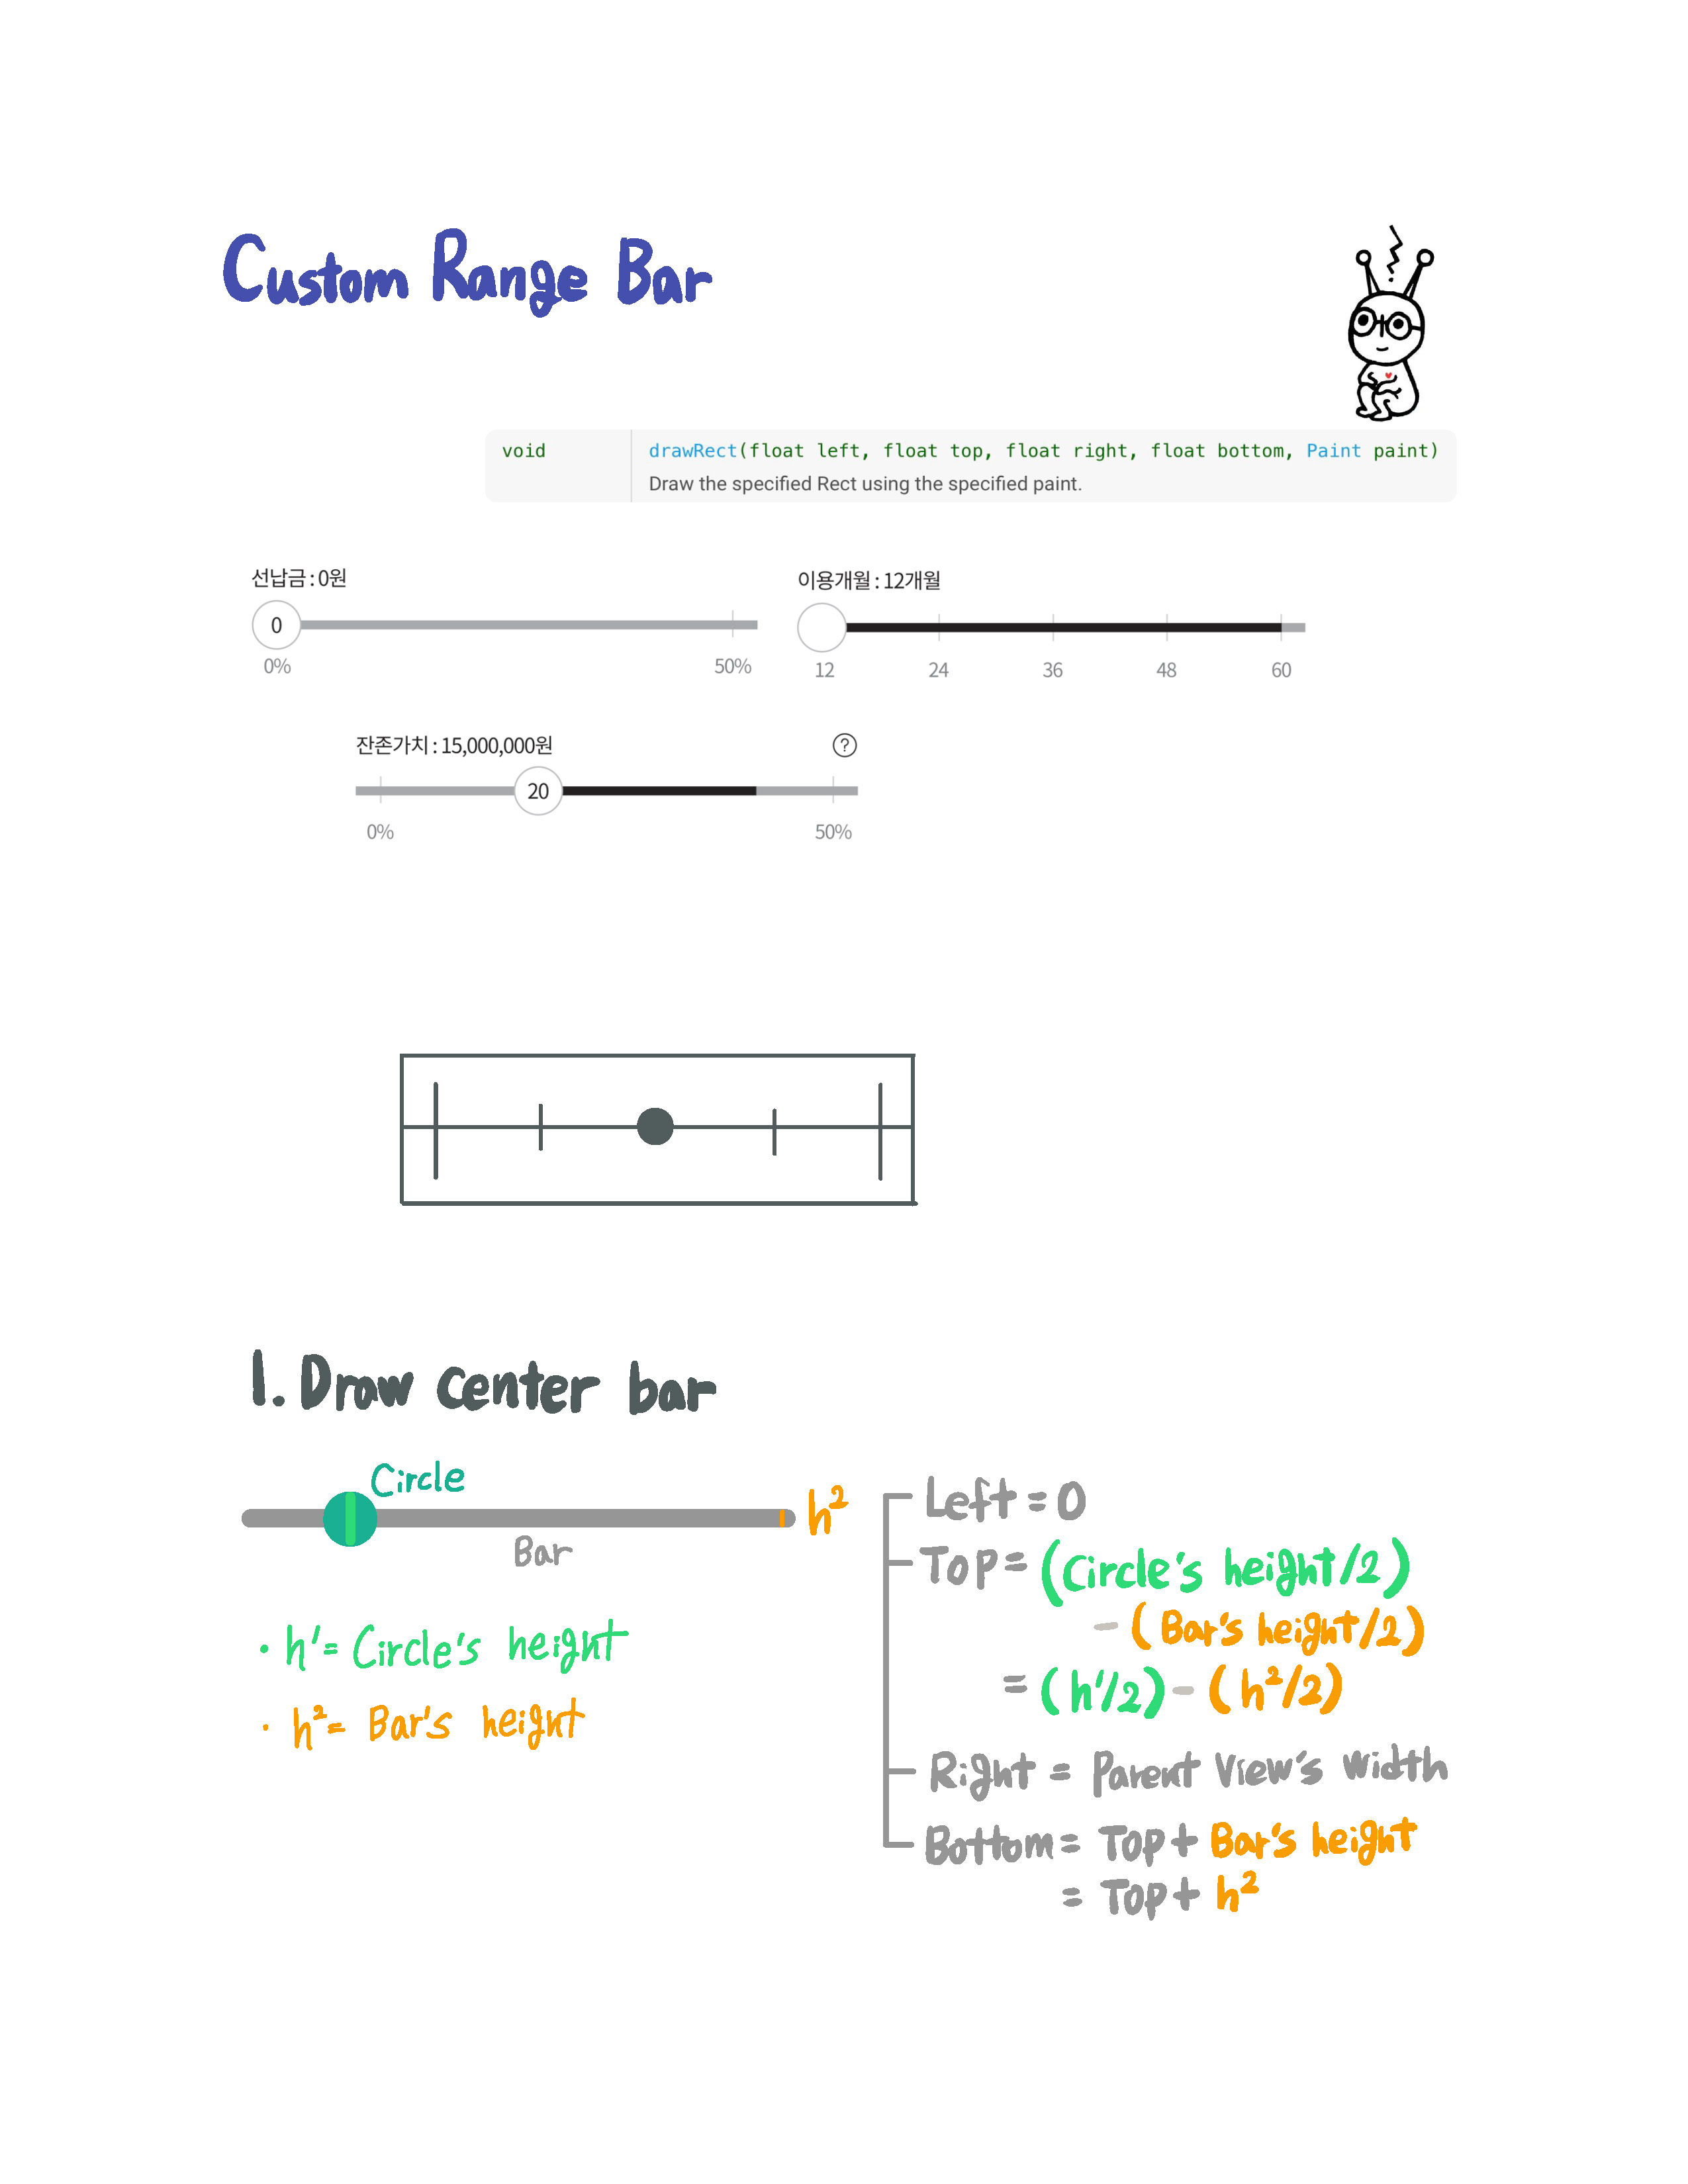 Custom Range Bar
void drawRect(float left, float top, float right, float bottom, Paint paint)
Draw the specified Rect using the specified paint.
선납금 : 0원
0
0% 50%
이용개월 : 12개월
12 24 36 48 60
잔존가치 : 15,000,000원 ?
20
0% 50%
1. Draw center bar
Circle
h²
Bar
· h'= Circle's height
· h²= Bar's height
Left = 0
Top = (Circle's height/2)
- (Bar's height/2)
= (h'/2) - (h²/2)
Right = Parent View's width
Bottom = Top + Bar's height
= Top + h²